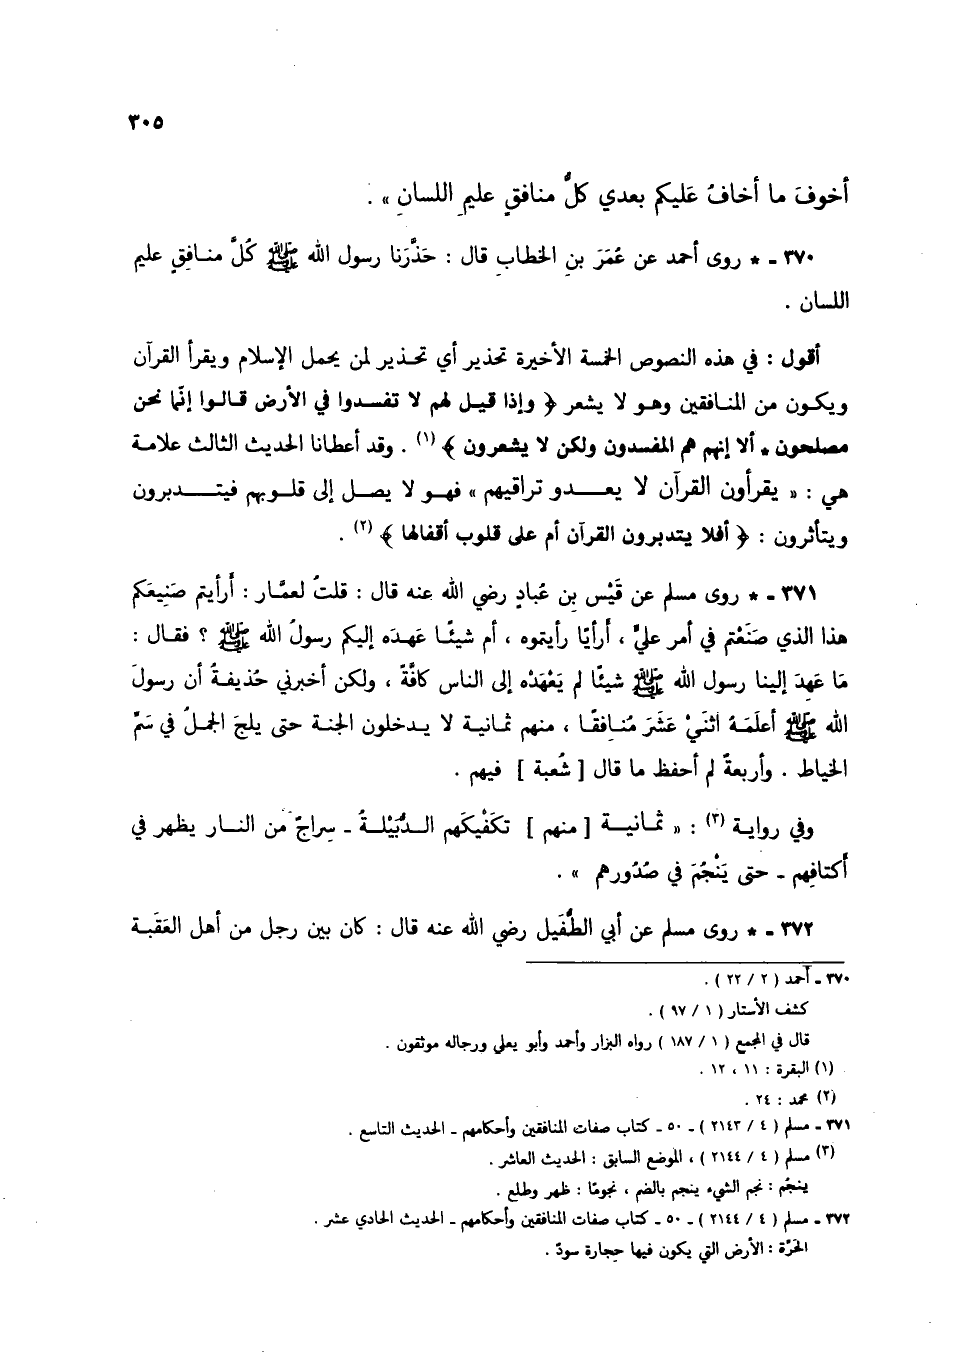 ٣٠٥
أخوفَ ما أخافُ عَليكم بعدي كلُّ منافقٍ عليمِ اللسانِ » .
٣٧٠ ـ * روى أحمد عن عُمَرَ بنِ الخطابِ قال : حَذَّرَنا رسول الله ﷺ كُلَّ منـافِقٍ عليم
اللسان .
أقول : في هذه النصوص الخمسة الأخيرة تحذير أي تحـذير لمن يحمل الإسلام ويقرأ القرآن
ويكـون من المنـافقين وهـو لا يشعر ﴿ وإذا قيـل لهم لا تفسـدوا في الأرض قـالـوا إنّما نحن
مصلحون * ألا إنهم هم المفسدون ولكن لا يشعرون ﴾ (١) . وقد أعطانا الحديث الثالث علامـة
هي : « يقرأون القرآن لا يعـــدو تراقيهم » فهـو لا يصـل إلى قلـوبهم فيتـــدبرون
ويتأثرون : ﴿ أفلا يتدبرون القرآن أم على قلوب أقفالها ﴾ (٢) .
٣٧١ ـ * روى مسلم عن قَيْس بن عُبادٍ رضي الله عنه قال : قلتُ لعمَّـار : أَرأيتم صَنِيعَكم
هذا الذي صنَعْتم في أمر عليٍّ ، أَرأيًا رأيتموه ، أم شيئًـا عَهـدَه إليكم رسولُ الله ﷺ ؟ فقـال :
مَا عَهِدَ إلينا رسول الله ﷺ شيئًا لم يَعْهَدْه إلى الناس كافَّةً ، ولكن أخبرني حُذيفـةُ أن رسولَ
الله ﷺ أعلَمَـهُ اثنَيْ عَشَرَ مُنـافِقًـا ، منهم ثمـانيـة لا يـدخلون الجنة حتى يلجَ الجملُ في سَمِّ
الخياط . وأربعةٌ لم أحفظ ما قال [ شُعبة ] فيهم .
وفي روايـة (٣) : « ثمـانيـة [ منهم ] تكَفْيكَهم الـدُّبَيْلـةُ ـ سِراجٌ من النـار يظهر في
أَكتافِهم ـ حتى يَنْجُمَ في صُدُورهم » .
٣٧٢ ـ * روى مسلم عن أبي الطُّفَيل رضي الله عنه قال : كان بين رجل من أهل العَقَبـة
٣٧٠ ـ أحمد ( ٢ / ٢٢ ) .
كشف الأستار ( ١ / ٩٧ ) .
قال في المجمع ( ١ / ١٨٧ ) رواه البزار وأحمد وأبو يعلى ورجاله موثقون .
(١) البقرة : ١١ ، ١٢ .
(٢) محمد : ٢٤ .
٣٧١ ـ مسلم ( ٤ / ٢١٤٣ ) ـ ٥٠ ـ كتاب صفات المنافقين وأحكامهم ـ الحديث التاسع .
(٣) مسلم ( ٤ / ٢١٤٤ ) ، الموضع السابق : الحديث العاشر .
ينجُم : نجم الشيء ينجم بالضم ، نجومًا : ظهر وطلع .
٣٧٢ ـ مسلم ( ٤ / ٢١٤٤ ) ـ ٥٠ ـ كتاب صفات المنافقين وأحكامهم ـ الحديث الحادي عشر .
الحَرّة : الأرض التي يكون فيها حِجارة سودٌ .